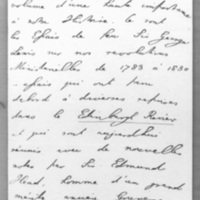 volume d'une haute importance
à notre Histoire. Ce sont
les Essais de feu Sir George
Lewis sur nos revolutions
Ministerielles de 1783 à 1830
essais qui ont paru
d'abord à diverses reprises
dans la Edinburgh Review
et qui sont aujourd'hui
réunis avec de nouvelles
notes par Sir Edmund
Head, homme d'un grand
mérite ancien Gouverneur